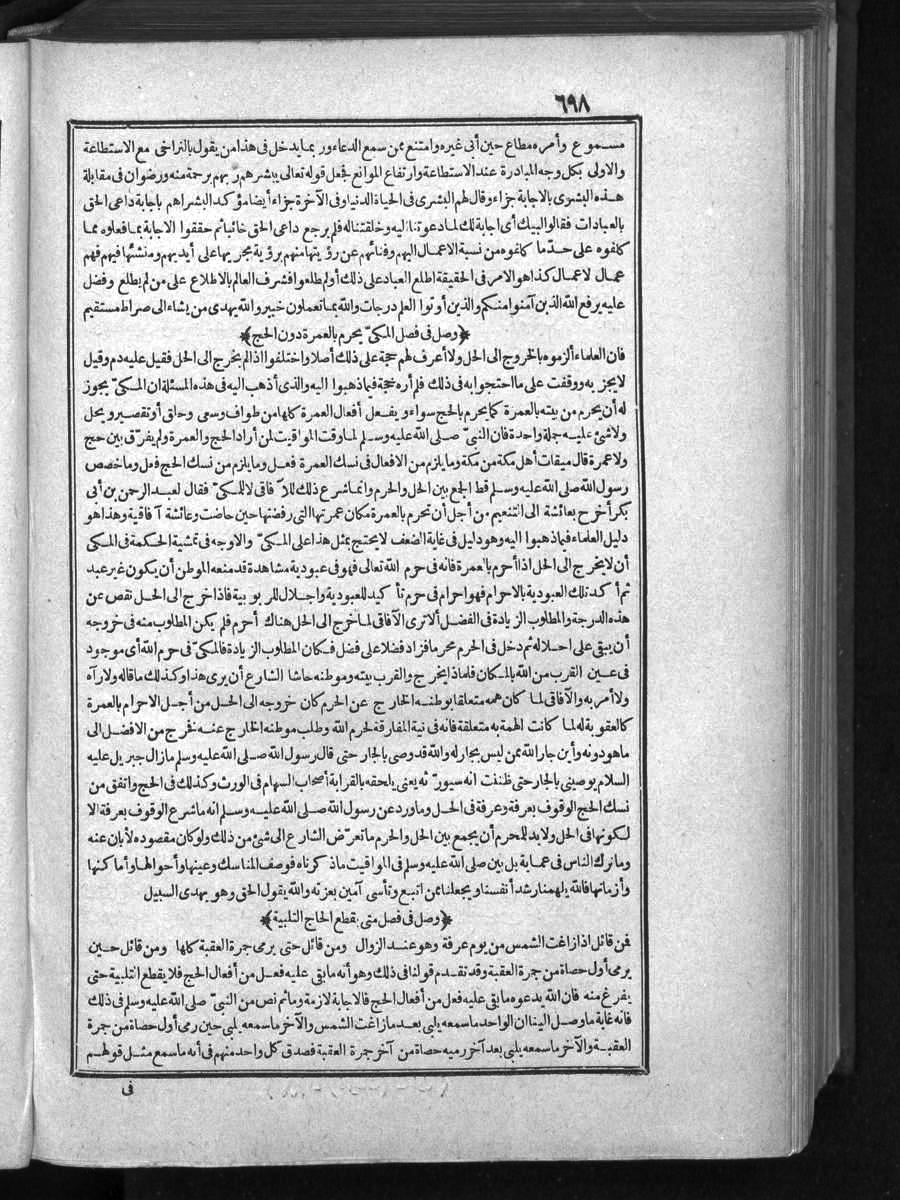 ٦٩٨
مسموع وأمره مطاع حين أبى غيره وامتنع ممن سمع الدعاء وربما يدخل فى هذا من يقول بالتراخى مع الاستطاعة
والاولى بكل وجه المبادرة عند الاستطاعة وارتفاع الموانع فجعل قوله تعالى يبشرهم ربهم برحمة منه ورضوان فى مقابلة
هذه البشرى بالاجابة جزاء وقال لهم البشرى فى الحياة الدنيا وفى الآخرة جزاء أيضا مؤكد البشراهم باجابة داعى الحق
بالعبادات فقالوا لبيك أى اجابة لك لما دعوتنا اليه وخلقتنا له فلم يرجع داعى الحق خائبا ثم حققوا الاجابة بما فعلوه مما
كلفوه على حدّ ما كلفوه من نسبة الاعمال اليهم وفنائهم عن رؤيتها منهم برؤية مجريها على أيديهم ومنشئها فيهم فهم
عمال لا عمال كذا هو الامر فى الحقيقة اطلع العباد على ذلك أولم يطلعوا فشرف العالم بالاطلاع على من لم يطلع وفضل
عليه يرفع الله الذين آمنوا منكم والذين أوتوا العلم درجات والله بما تعملون خبير والله يهدى من يشاء الى صراط مستقيم
﴿وصل فى فصل المكىّ يحرم بالعمرة دون الحج﴾
فان العلماء ألزموه بالخروج الى الحل ولا أعرف لهم حجة على ذلك أصلا واختلفوا اذا لم يخرج الى الحل فقيل عليه دم وقيل
لا يجزيه ووقفت على ما احتجوا به فى ذلك فلم أره حجة فيما ذهبوا اليه والذى أذهب اليه فى هذه المسئلة ان المكىّ يجوز
له أن يحرم من بيته بالعمرة كما يحرم بالحج سواء ويفعل أفعال العمرة كلها من طواف وسعى وحلق أو تقصير ويحل
ولا شئ عليه جملة واحدة فان النبىّ صلى الله عليه وسلم لما وقت المواقيت لمن أراد الحج والعمرة ولم يفرّق بين حج
ولا عمرة قال ميقات أهل مكة من مكة وما يلزم من الافعال فى نسك العمرة فعل وما يلزم من نسك الحج فعل وما خصص
رسول الله صلى الله عليه وسلم قط الجمع بين الحل والحرم وانما شرع ذلك للآفاقى لا للمكىّ فقال لعبد الرحمن بن أبى
بكر أخرج بعائشة الى التنعيم من أجل أن تحرم بالعمرة مكان عمرتها التى رفضتها حين حاضت وعائشة آفاقية وهذا هو
دليل العلماء فيما ذهبوا اليه وهو دليل فى غاية الضعف لا يحتج بمثل هذا على المكىّ والاوجه فى تمشية الحكمة فى المكى
أن لا يخرج الى الحل اذا أحرم بالعمرة فانه فى حرم الله تعالى فهو فى عبودية مشاهدة قد منعه الموطن أن يكون غير عبد
ثم أكد تلك العبودية بالاحرام فهو احرام فى حرم تأكيد للعبودية واجلال للربوبية فاذا خرج الى الحل نقص عن
هذه الدرجة والمطلوب الزيادة فى الفضل ألا ترى الآفاقى لما خرج الى الحل هناك أحرم فلم يكن المطلوب منه فى خروجه
أن يبقى على احلاله ثم دخل فى الحرم محرما فزاد فضلا على فضل فكان المطلوب الزيادة فالمكىّ فى حرم الله أى موجود
فى عين القرب من الله بالمكان فلماذا يخرج والقرب بيته وموطنه حاشا الشارع أن يرى هذا وكذلك ما قاله ولا رآه
ولا أمر به والآفاقى لما كان همه متعلقا بوطنه الخارج عن الحرم كان خروجه الى الحل من أجل الاحرام بالعمرة
كالعقوبة له لما كانت الهمة به متعلقة فانه فى نية المفارقة لحرم الله وطلب موطنه الخارج عنه فخرج من الافضل الى
ما هو دونه وأين جار الله ممن ليس بجار له والله قد وصى بالجار حتى قال رسول الله صلى الله عليه وسلم ما زال جبريل عليه
السلام يوصينى بالجار حتى ظننت انه سيورّثه يعنى يلحقه بالقرابة أصحاب السهام فى الورث وكذلك فى الحج واتفق من
نسك الحج الوقوف بعرفة وعرفة فى الحل وما ورد عن رسول الله صلى الله عليه وسلم انه ما شرع الوقوف بعرفة الا
لكونها فى الحل ولا بد للمحرم أن يجمع بين الحل والحرم ما تعرّض الشارع الى شئ من ذلك ولو كان مقصوده لأبان عنه
وما ترك الناس فى عماية بل بين صلى الله عليه وسلم فى المواقيت ما ذكرناه فوصف المناسك وعينها وأحوالها وأماكنها
وأزمانها فالله يلهمنا رشد أنفسنا ويجعلنا ممن اتبع وتأسى آمين بعزته والله يقول الحق وهو يهدى السبيل
﴿وصل فى فصل متى يقطع الحاج التلبية﴾
فمن قائل اذا زاغت الشمس من يوم عرفة وهو عند الزوال ومن قائل حتى يرمى جمرة العقبة كلها ومن قائل حين
يرمى أول حصاة من جمرة العقبة وقد تقدم قولنا فى ذلك وهو أنه ما بقى عليه فعل من أفعال الحج فلا يقطع التلبية حتى
يفرغ منه فان الله يدعوه ما بقى عليه فعل من أفعال الحج فالاجابة لازمة وما ثم نص من النبىّ صلى الله عليه وسلم فى ذلك
فانه غاية ما وصل الينا ان الواحد ما سمعه يلبى بعد ما زاغت الشمس والآخر ما سمعه يلبى حين رمى أول حصاة من جمرة
العقبة والآخر ما سمعه يلبى بعد آخر رميه حصاة من آخر جمرة العقبة فصدق كل واحد منهم فى أنه ما سمع مثل قولهم
فى